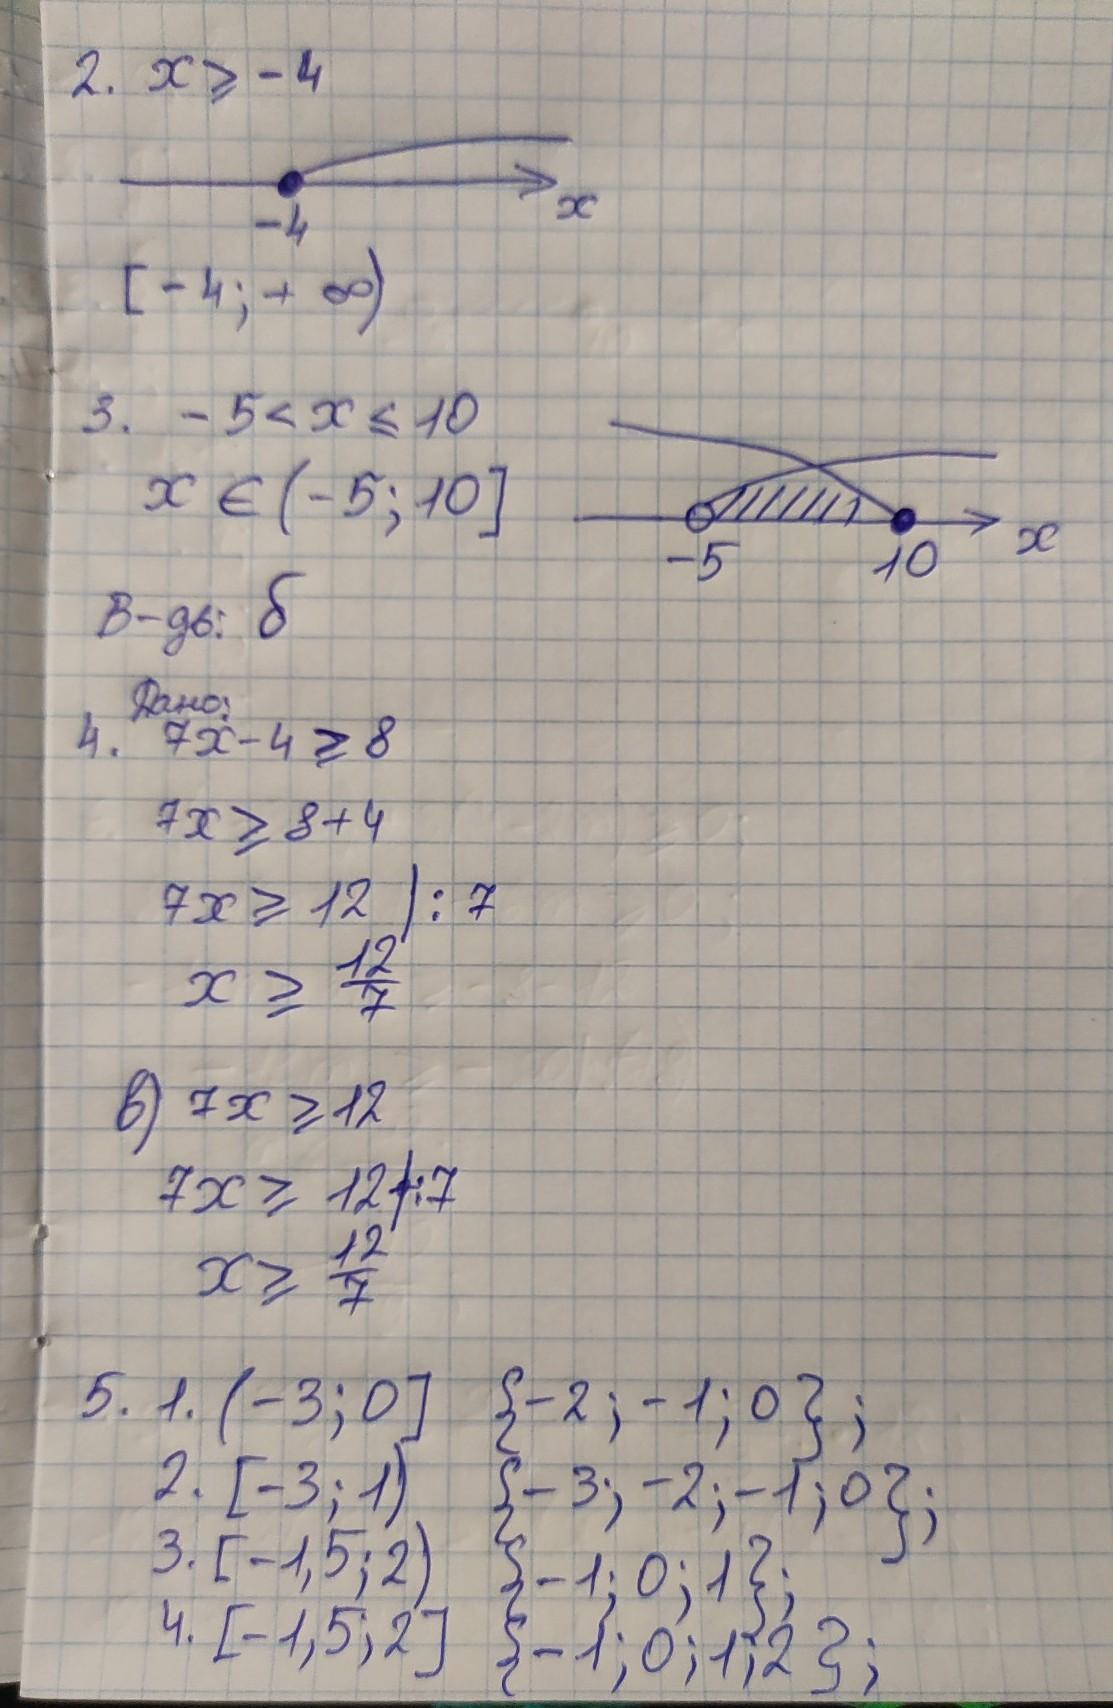 2. x ⩾ -4
-4
x
[-4; + ∞)
3. -5 < x ⩽ 10
x ∈ (-5; 10]
-5 10 x
В-дь: б
Дано:
4. 7x - 4 ⩾ 8
7x ⩾ 8 + 4
7x ⩾ 12 | : 7
x ⩾ 12/7
в) 7x ⩾ 12
7x ⩾ 12 | : 7
x ⩾ 12/7
5. 1. (-3; 0] {-2; -1; 0};
2. [-3; 1) {-3; -2; -1; 0};
3. [-1,5; 2) {-1; 0; 1};
4. [-1,5; 2] {-1; 0; 1; 2};